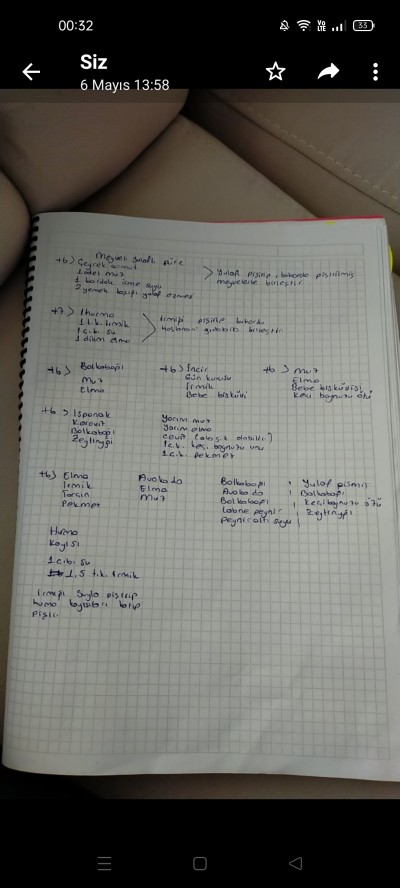 00:32
Vo LTE
33
Siz
6 Mayıs 13:58
Meyveli Yulaflı püre
+6) Çeyrek armut
1 adet muz
1 bardak içme suyu
2 yemek kaşığı yulaf ezmesi
Yulaf pişirip, buharda pişirilmiş
meyvelerle birleştir.
+7) 1 hurma
1 t.k. irmik
1 ç.b. su
1 dilim elma
irmiği pişirip buharda
haşlanan gıdalarla birleştir.
+6) Balkabağı
Muz
Elma
+6) İncir
Gün kurusu
İrmik
Bebe bisküvi
+6) Muz
Elma
Bebe bisküvisi
Keçi boynuzu özü
+6) Ispanak
Karavit
Balkabağı
Zeytinyğı
Yarım muz
Yarım elma
1 ç.k. keçi boynuzu unu
1 ç.k. pekmez
+6) Elma
İrmik
Tarçın
Pekmez
Avokado
Elma
Muz
Balkabağı
Avokado
Balkabağı
Labne peynir
Peynir altı suyu
Yulaf pişmiş
Balkabağı
Keçiboynuzu özü
Zeytinyğı
Hurma
Kayısı
1 ç.b. su
1,5 t.k. irmik
İrmeği suyla pişirip
hurma kayısıları katıp
pişir.